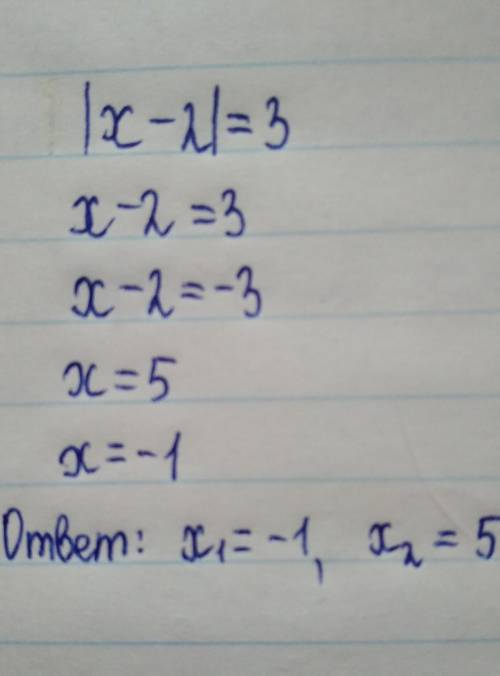 |x-2|=3
x-2=3
x-2=-3
x=5
x=-1
Ответ: x₁=-1, x₂=5